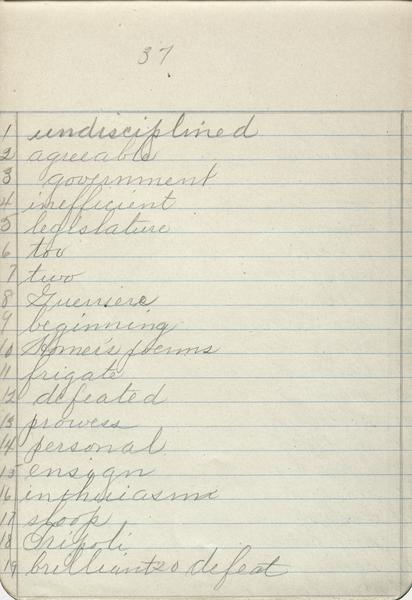 37
1 undisciplined
2 agreeable
3 government
4 inefficient
5 legislature
6 too
7 two
8 Guerriere
9 beginning
10 Homer's poems
11 frigate
12 defeated
13 prowess
14 personal
15 ensign
16 inthusiasm
17 sloop
18 Tripoli
19 brilliant defeat